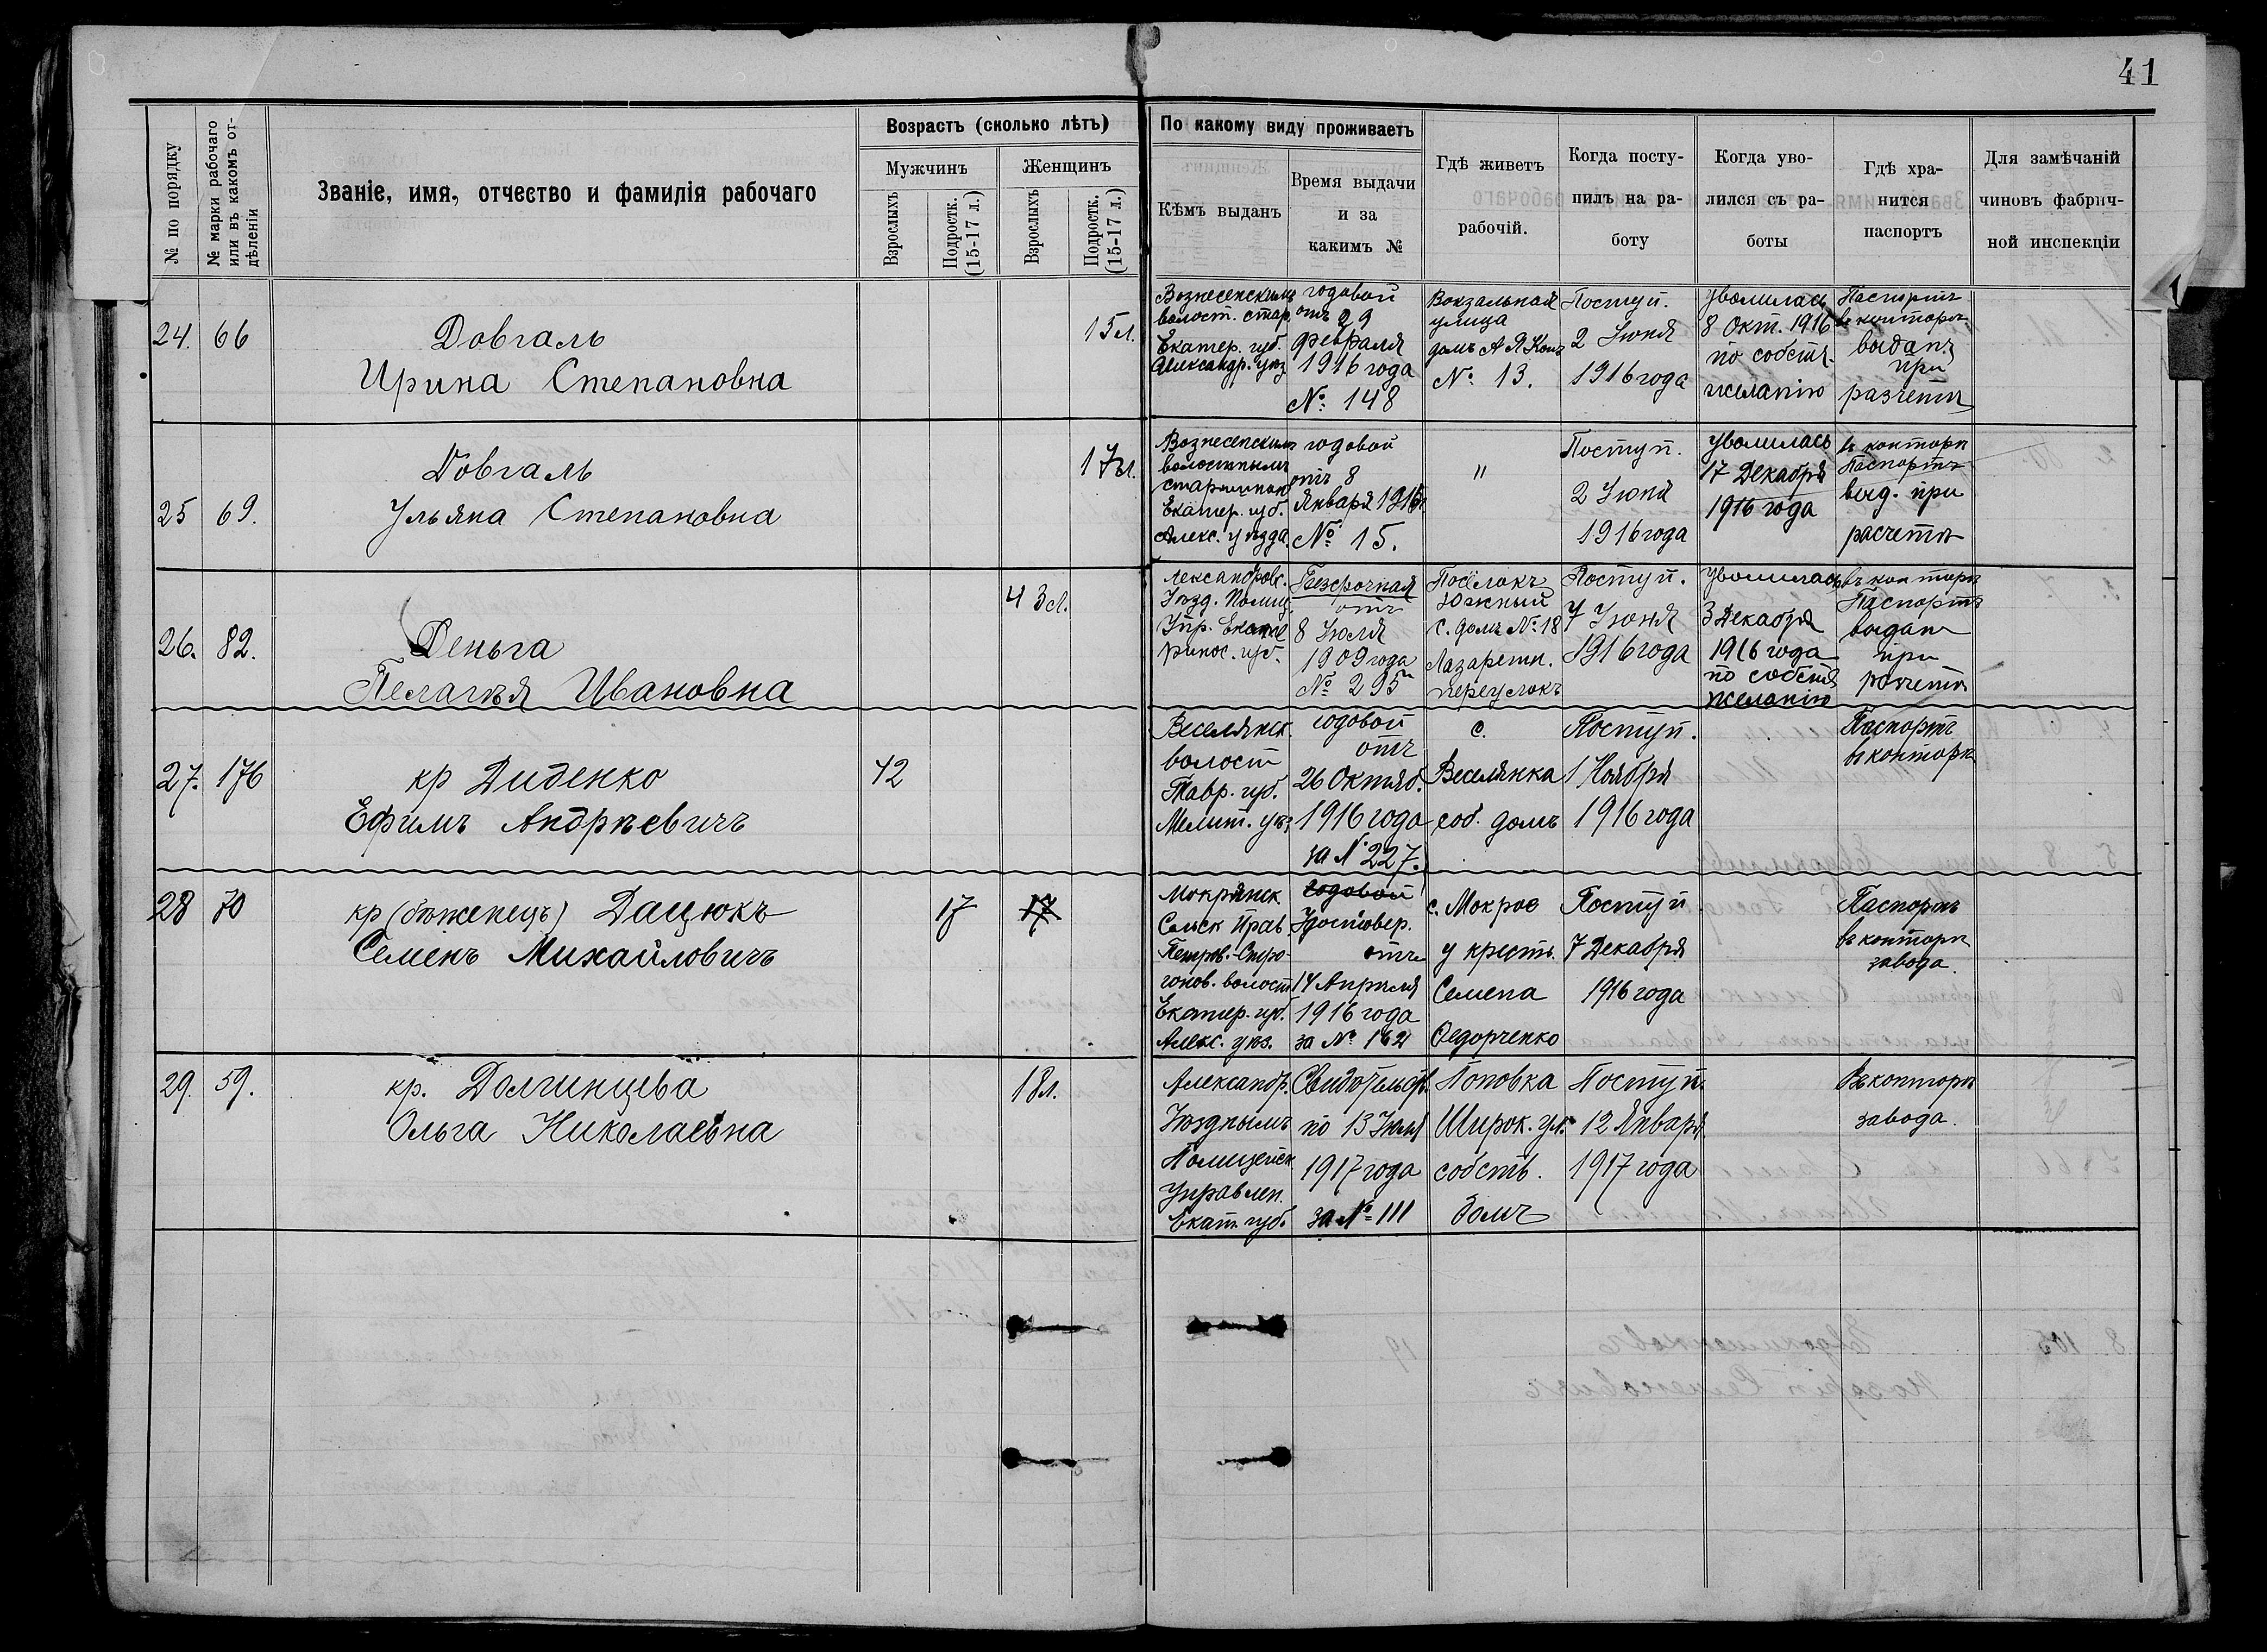 41
№ по порядку
№ марки рабочаго
или въ какомъ от-
дѣленіи
Званіе, имя, отчество и фамилія рабочаго
Возрастъ (сколько лѣтъ)
Мужчинъ
Женщинъ
Взрослыхъ
Подростк.
(15-17 л.)
Взрослыхъ
Подростк.
(15-17 л.)
По какому виду проживаетъ
Кѣмъ выданъ
Время выдачи
и за
какимъ №
Гдѣ живетъ
рабочій.
Когда посту-
пилъ на ра-
боту
Когда уво-
лился съ ра-
боты
Гдѣ хра-
нится
паспортъ
Для замѣчаній
чиновъ фабрич-
ной инспекціи
24. 66
Довгаль
Ирина Степановна
15 л.
Вознесенскимъ
волост. стар.
Екатер. губ.
Александр. уѣз
годовой
отъ 29
февраля
1916 года
№: 148
Вокзальная
улица
домъ А Я Кон
№: 13.
Поступ.
2 Іюня
1916 года
уволилась
8 Окт. 1916
по собств.
желанію
Паспортъ
въ конторѣ
выданъ
при
разчетѣ
25 69.
Довгаль
Ульяна Степановна
17 л.
Вознесенскимъ
волостнымъ
старшиною
Екатер. губ.
Алекс. уѣзда
годовой
отъ 8
Января 1916 г.
№ 15.
"
Поступ.
2 Іюня
1916 года
уволилась
17 Декабря
1916 года
въ конторѣ
Паспортъ
выд. при
расчетѣ
26. 82.
Деньга
Пелагѣя Ивановна
43 л.
лександровс.
Уѣзд. Полиц.
Упр. Екате
ринос. губ.
Безсрочная
отъ
8 Іюля
1909 года
№ 295
Посёлокъ
Южный
с. домъ №: 18
Лазаретн.
переулокъ
Поступ.
7 Іюня
1916 года
Уволилась
3 Декабря
1916 года
по собств
желанію
въ конторѣ
Паспортъ
выданъ
при
расчетѣ
27. 176
кр Диденко
Ефимъ Андрѣевичъ
42
Веселянск.
волост
Тавр. губ.
Мелит. уѣз
годовой
отъ
26 Октяб.
1916 года
за № 227.
с.
Веселянка
соб. домъ
Поступ.
1 Ноября
1916 года
Паспортъ
въ конторѣ
28 70
кр (бѣженецъ) Дацюкъ
Семенъ Михайловичъ
17
17
Мокрянск
Сельск Прав.
Петров.-Стро-
гонов. волост
Екатер. губ.
Алекс. уѣз.
годовой
Удостовер.
отъ
14 Апреля
1916 года
за № 162
с. Мокрое
у крестъ.
Семена
Ѳедорченко
Поступ
7 Декабря
1916 года
Паспортъ
въ конторѣ
завода.
29. 59.
кр. Долгинцева
Ольга Николаевна
18 л.
Александр.
Уѣзднымъ
Полицейск
Управлен.
Екат. губ.
Свидѣтельств.
по 13 Іюля
1917 года
за № 111
Поповка
Широк. ул.
собств.
домъ
Поступ.
12 Января
1917 года
Въ конторѣ
завода.